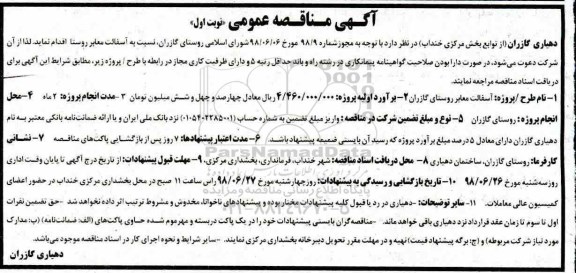 آگهی مناقصه عمومی «نوبت اول»
دهیاری گازران (از توابع بخش مرکزی خنداب) در نظر دارد با توجه به مجوز شماره ۹۸/۹ مورخ ۹۸/۰۶/۰۶ شورای اسلامی روستای گازران، نسبت به آسفالت معابر روستا اقدام نماید. لذا از آن
شرکت دعوت می‌شود، در صورت دارا بودن صلاحیت گواهینامه پیمانکاری در رشته راه و باند حداقل رتبه ۵ و دارای ظرفیت کاری مجاز در رابطه با طرح / پروژه زیر، مطابق شرایط این آگهی برای
دریافت اسناد مناقصه مراجعه نمایند.
۱- نام طرح / پروژه: آسفالت معابر روستای گازران ۲- برآورد اولیه پروژه: ۴/۴۶۰/۰۰۰/۰۰۰ ریال معادل چهارصد و چهل و شش میلیون تومان ۳- مدت انجام پروژه: ۲ ماه ۴- محل
انجام پروژه: روستای گازران ۵- نوع و مبلغ تضمین شرکت در مناقصه: واریز مبلغ تضمین به شماره حساب (۰۱۰۵۴۰۲۲۸۵۰۰۱) نزد بانک ملی ایران و یا ارائه ضمانت‌نامه بانکی معتبر به نام
دهیاری گازران دارای معادل ۵ درصد مبلغ برآورد پروژه که رسید آن بایستی ضمیمه پیشنهاد باشد. ۶- مدت اعتبار پیشنهادها: ۷ روز پس از بازگشایی پاکت‌های مناقصه ۷- نشانی
کارفرما: روستای گازران، ساختمان دهیاری ۸- محل دریافت اسناد مناقصه: شهر خنداب، فرمانداری، بخشداری مرکزی. ۹- مهلت قبول پیشنهادات: از تاریخ درج آگهی تا پایان وقت اداری
روز سه‌شنبه مورخ ۹۸/۰۶/۲۶ ۱۰- تاریخ بازگشایی و رسیدگی به پیشنهادات: روز چهارشنبه مورخ ۹۸/۰۶/۲۷ رأس ساعت ۱۱ صبح در محل بخشداری مرکزی خنداب در حضور اعضای
کمیسیون عالی معاملات. ۱۱- سایر توضیحات: دهیاری در رد یا قبول کلیه پیشنهادات مختار بوده و پیشنهادهای ناخوانا، مخدوش و مشروط ترتیب اثر داده نخواهد شد - حق تضمین نفرات
اول تا سوم تا زمان عقد قرارداد نزد دهیاری باقی خواهد ماند. - مناقصه‌گران بایستی پیشنهادات خود را در یک پاکت دربسته و مهرموم شده حاوی پاکت‌های (الف: ضمانت‌نامه) (ب: مدارک
مورد نیاز شرکت مربوطه) و (ج: برگه پیشنهاد قیمت) تهیه و در مهلت مقرر تحویل دبیرخانه بخشداری مرکزی نمایند. - سایر شرایط و نحوه اجرای کار در اسناد مناقصه موجود می‌باشد.
دهیاری گازران